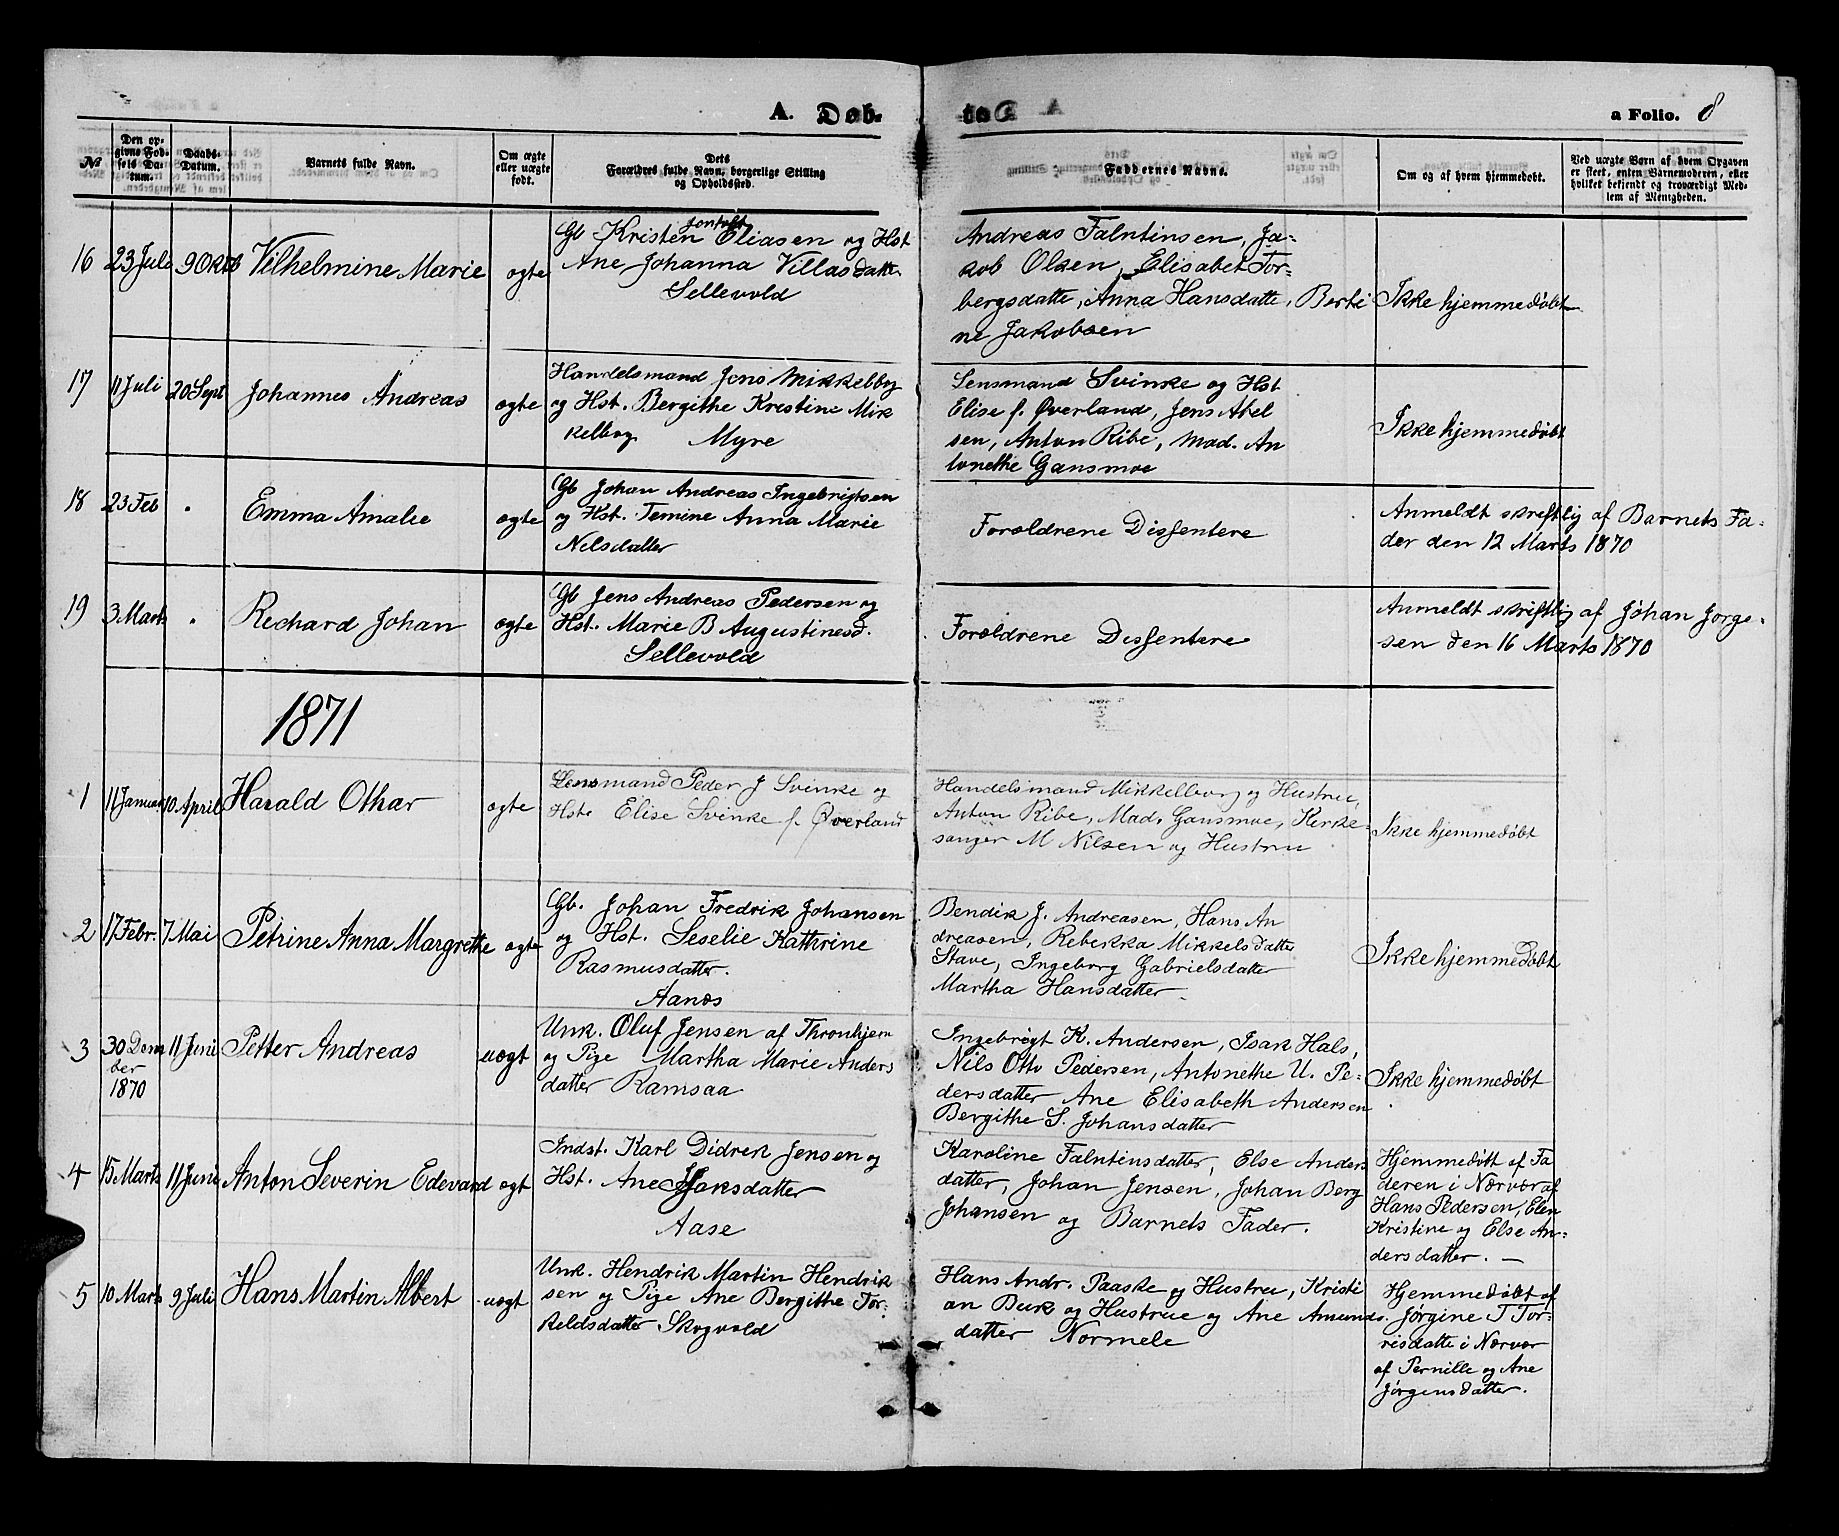 A. Døb.
a Folio. 8
№
Den op-
givne Fød-
sels Da-
tum.
Daabs-
Datum.
Barnets fulde Navn.
Om ægte
eller uægte
født.
Dets
Forældres fulde Navn, borgerlige Stilling
og Opholdssted.
Faddernes Navne.
Om og af hvem hjemmedøbt.
Ved uægte Børn af hvem Opgaven
er skeet, enten Barnemoderen, eller
hvilket bekjendt og troværdigt Med-
lem af Menigheden.
16 23 Juli 9 Oktb Vilhelmine Marie ægte
Gb Kristen Jentoft Eliasen og Hst
Ane Johanna Villasdatte
Sellevold
Andreas Falntinsen, Ja-
kob Olsen, Elisabet Tor-
bergsdatte, Anna Hansdatte, Berti
ne Jakobsen
Ikke hjemmedøbt
17 11 Juli 20 Sept Johannes Andreas ægte
Handelsmand Jens Mikkelbog
og Hst. Bergithe Kristine Mik
kelborg Myre
Lensmand Svinke og Hst
Elise f. Øverland, Jens Abel
sen, Anton Ribe, Mad. An
tonethe Gansmoe
Ikke hjemmedøbt
18 23 Feb " Emma Amalie ægte
Gb Johan Andreas Ingebrigtsen
og Hst. Temine Anna Marie
Nelsdatter
Forældrene Dissentere
Anmeldt skriftlig af Barnets Fa-
der den 12 Marts 1870
19 3 Marts " Rechard Johan ægte
Gb Jens Andreas Pedersen og
Hst. Marie B Augustinesd.
Sellevold
Forældrene Dissentere
Anmeldt skriftlig af Johan Jorge-
sen den 16 Marts 1870
1871
1 11 Januar 10 April Harald Othar ægte
Lensmand Peder J Svinke og
Hst. Elise Svinke f. Øverland
Handelsmand Mikkelborg og Hustrue,
Anton Ribe, Mad. Gansmoe, Kerke-
sanger M Nilsen og Hustru
Ikke hjemmedøbt
2 17 Febr. 7 Mai Petrine Anna Margrethe ægte
Gb. Johan Fredrik Johansen
og Hst. Seselie Kathrine
Rasmusdatter.
Aanæs
Bendik J. Andreasen, Hans An
dreasen, Rebekka Mikkelsdatter
Stave, Ingeborg Gabrielsdatter
Martha Hansdatter
Ikke hjemmedøbt
3 30 Decm
ber
1870 11 Juni Petter Andreas uægt
Unk. Oluf Jensen af Thronhjem
og Pige Martha Marie Anders
datter Ramsaa
Ingebrigt K. Andersen, Isak Hals,
Nils Otto Pedersen, Antonethe U. Pe-
dersdatter Ane Elisabeth Andersen
Bergithe S. Johansdatter
Ikke hjemmedøbt
4 15 Marts 11 Juni Anton Severin Edevard ægt
Indst. Karl Didrek Jensen og
Hst. Ane Hansdatter
Aase
Karoline Falntinsdatter, Else Anders
datter, Johan Jensen, Johan Berg
Johansen og Barnets Fader.
Hjemmedøbt af Fa
deren i Nærvær af
Hans Pedersen, Elen
Kristine og Else An-
dersdatter. —
5 10 Marts 9 Juli Hans Martin Albert uægt
Unk. Hendrik Martin Hendrik
sen og Pige Ane Bergithe Tor-
keldsdatter Skogvold
Hans Andr. Paaske og Hustru, Kristi
an Buk og Hustrue og Ane Amunds
datter Normele
Hjemmedøbt af
Jørgine T Tor-
risdatte i Nærvær
af Pernille og Ane
Jørgensdatter.